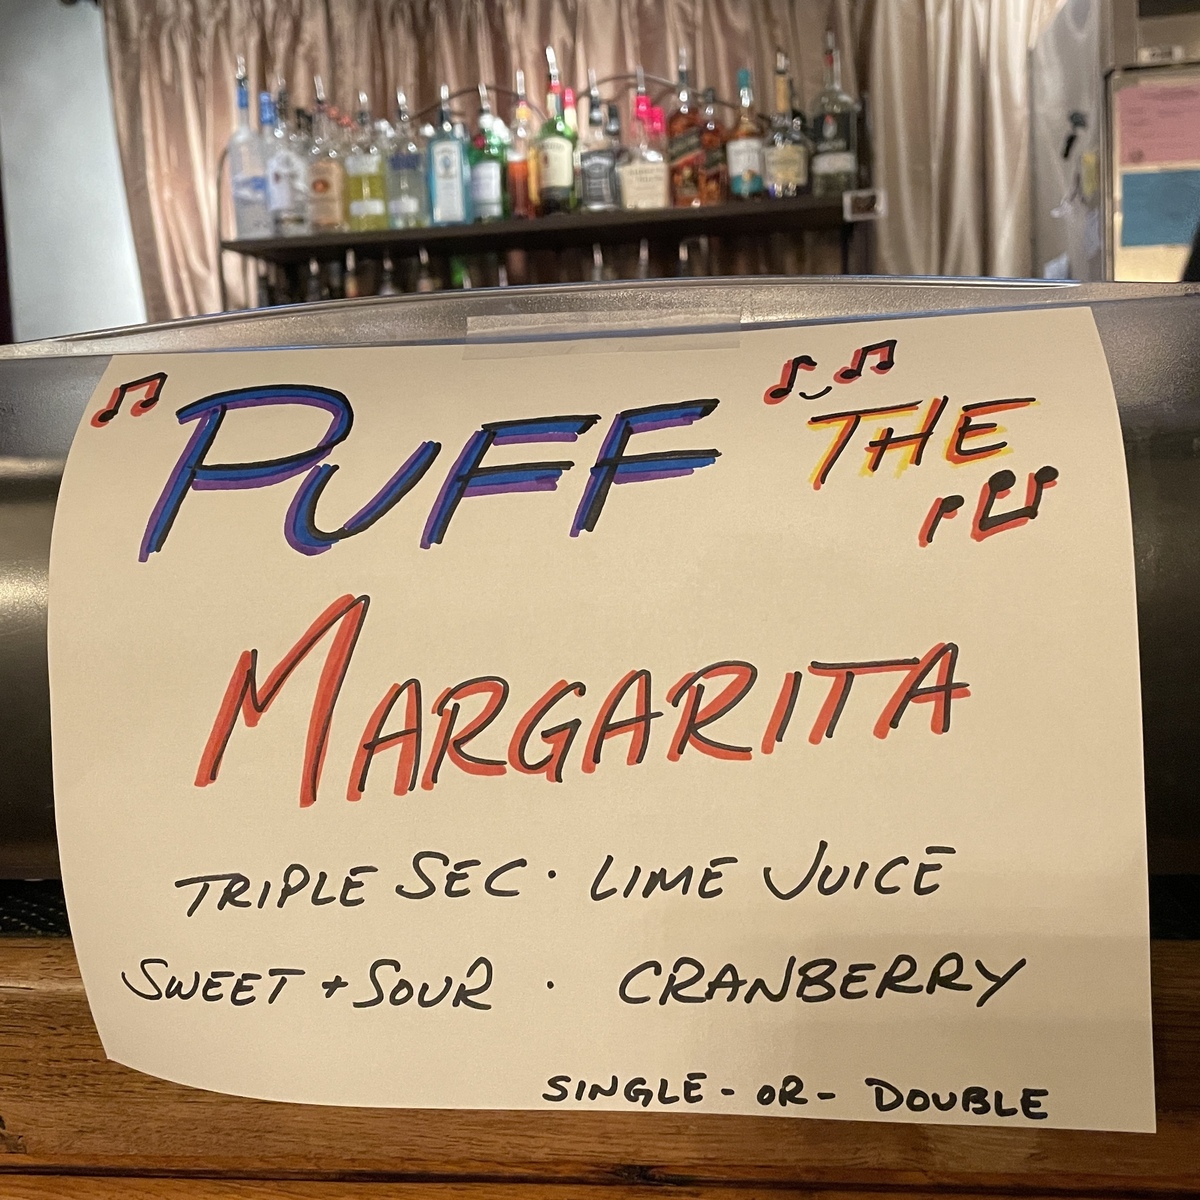 PUFF THE
MARGARITA
TRIPLE SEC · LIME JUICE
SWEET + SOUR · CRANBERRY
SINGLE - OR - DOUBLE